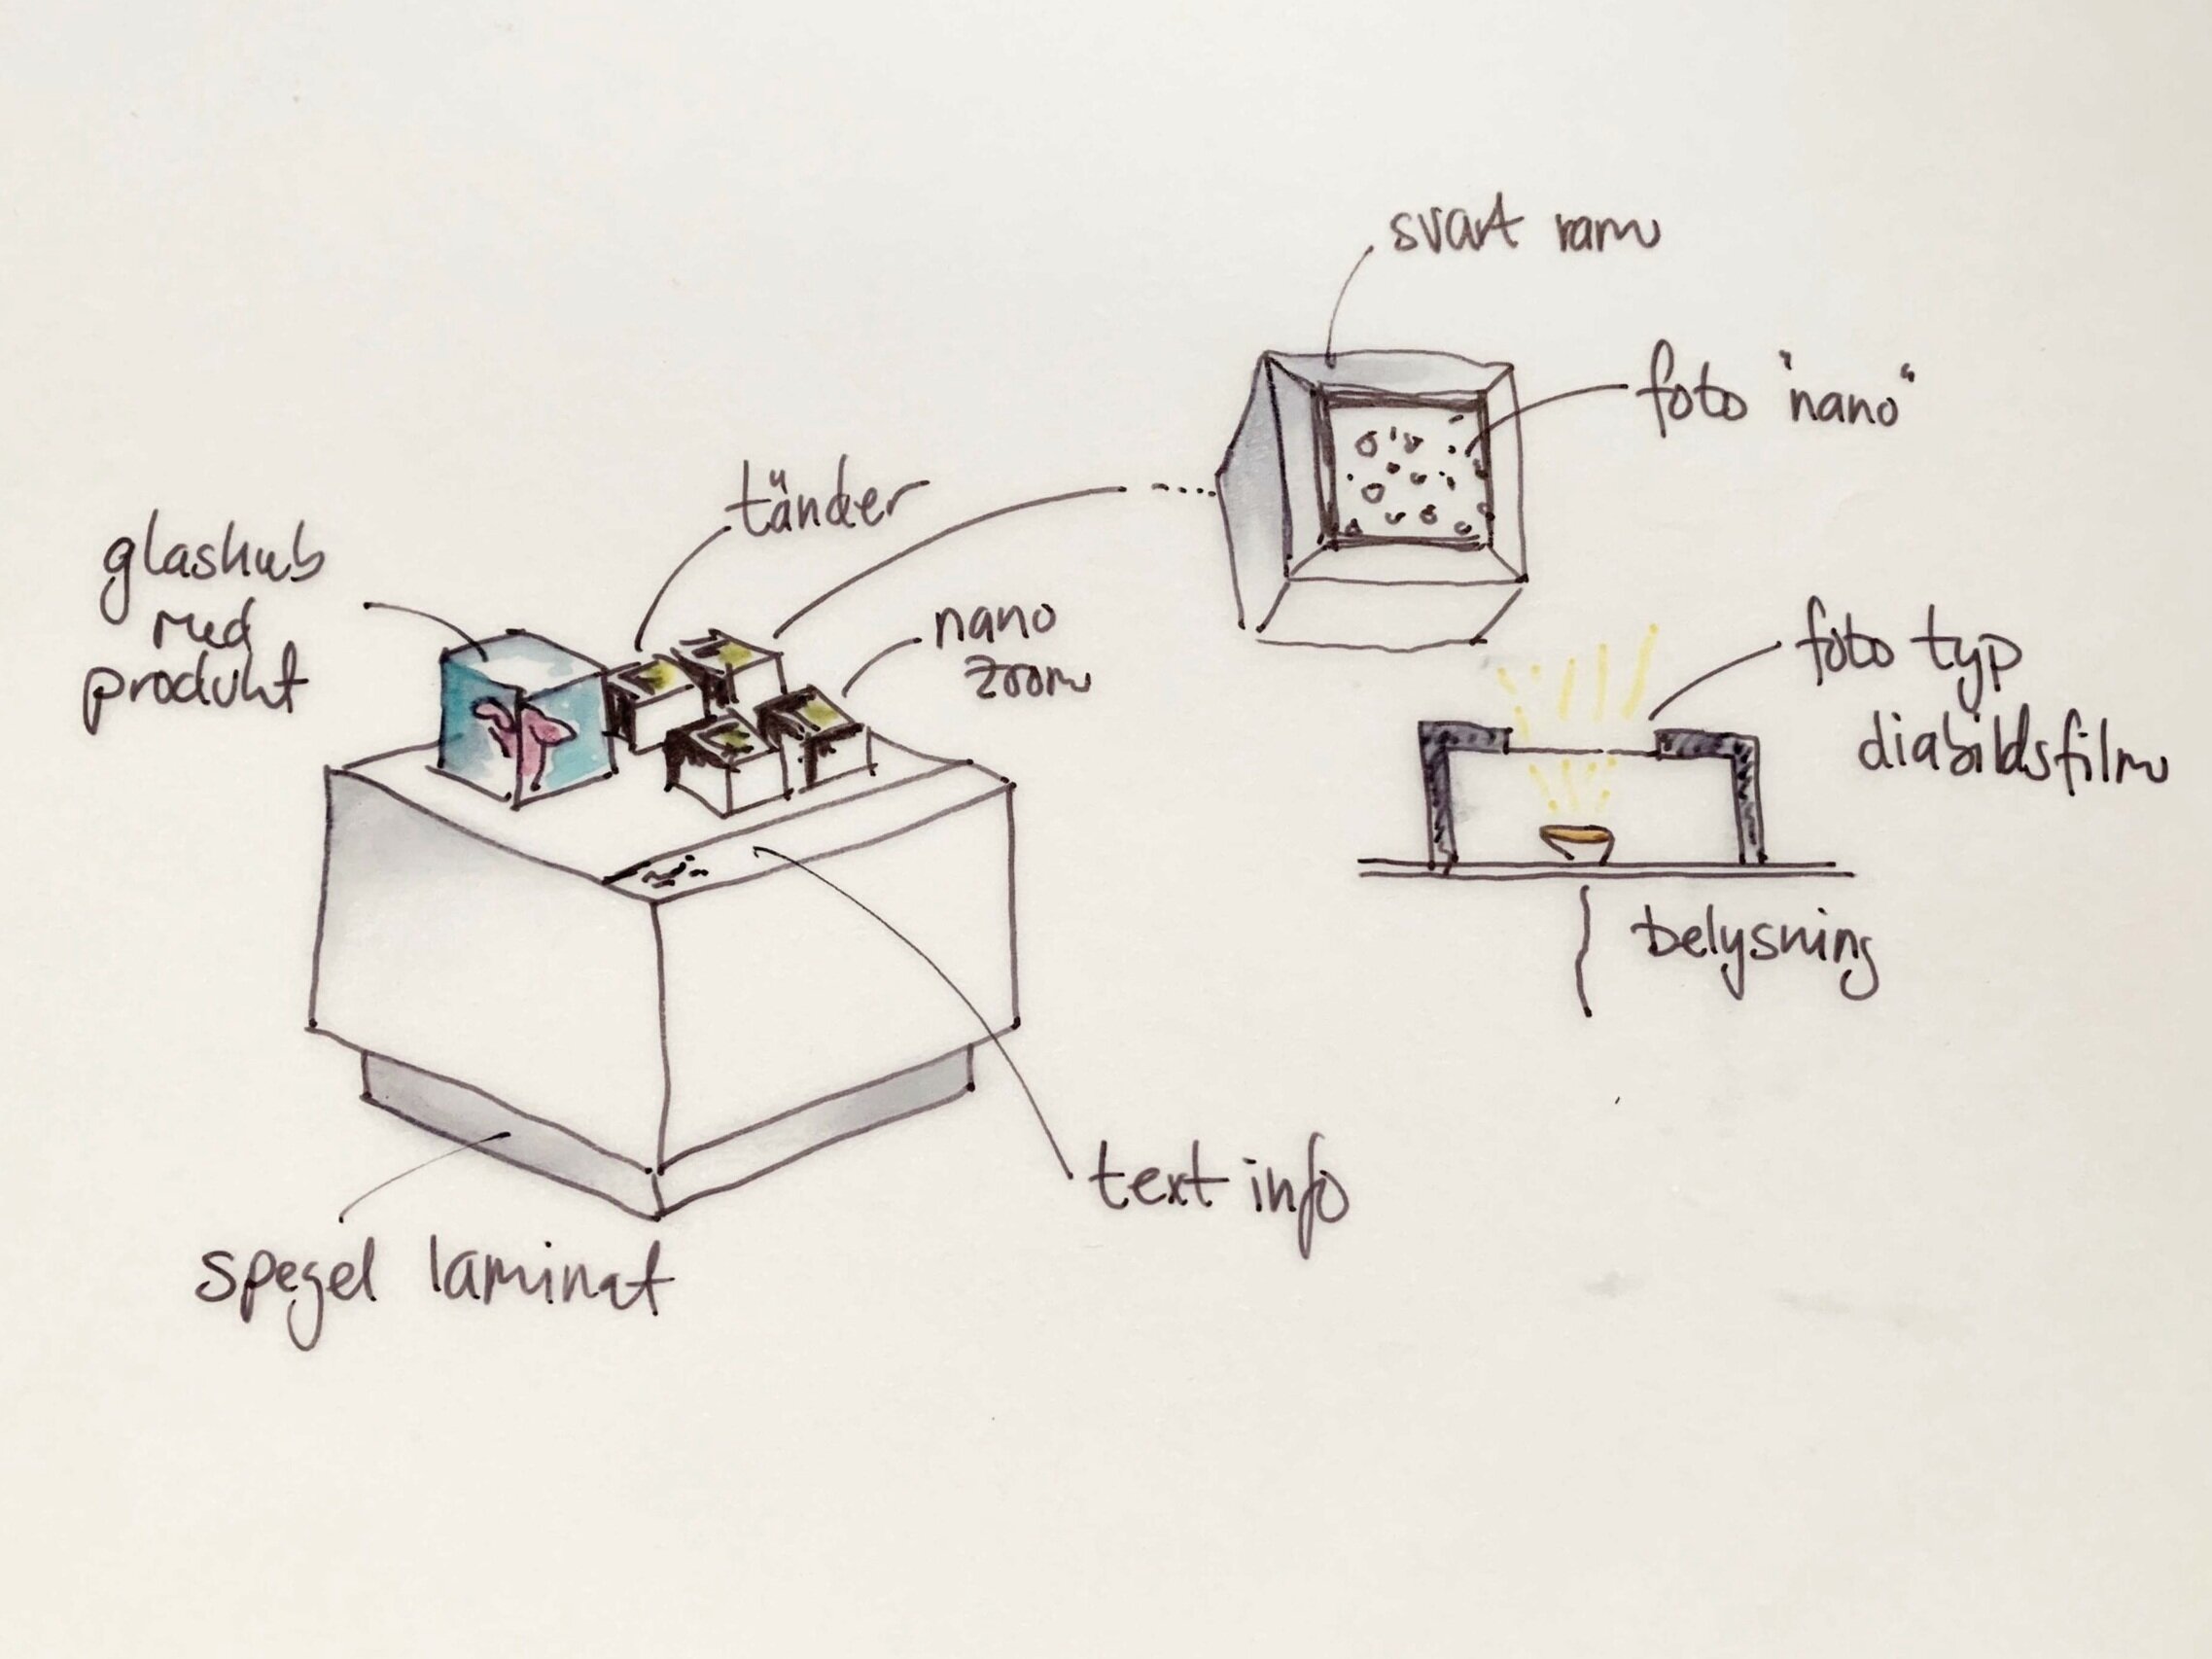 svart ram
foto "nano"
tänder
glaskub
med
produkt
nano
zoom
foto typ
diabildsfilm
belysning
text info
spegel laminat